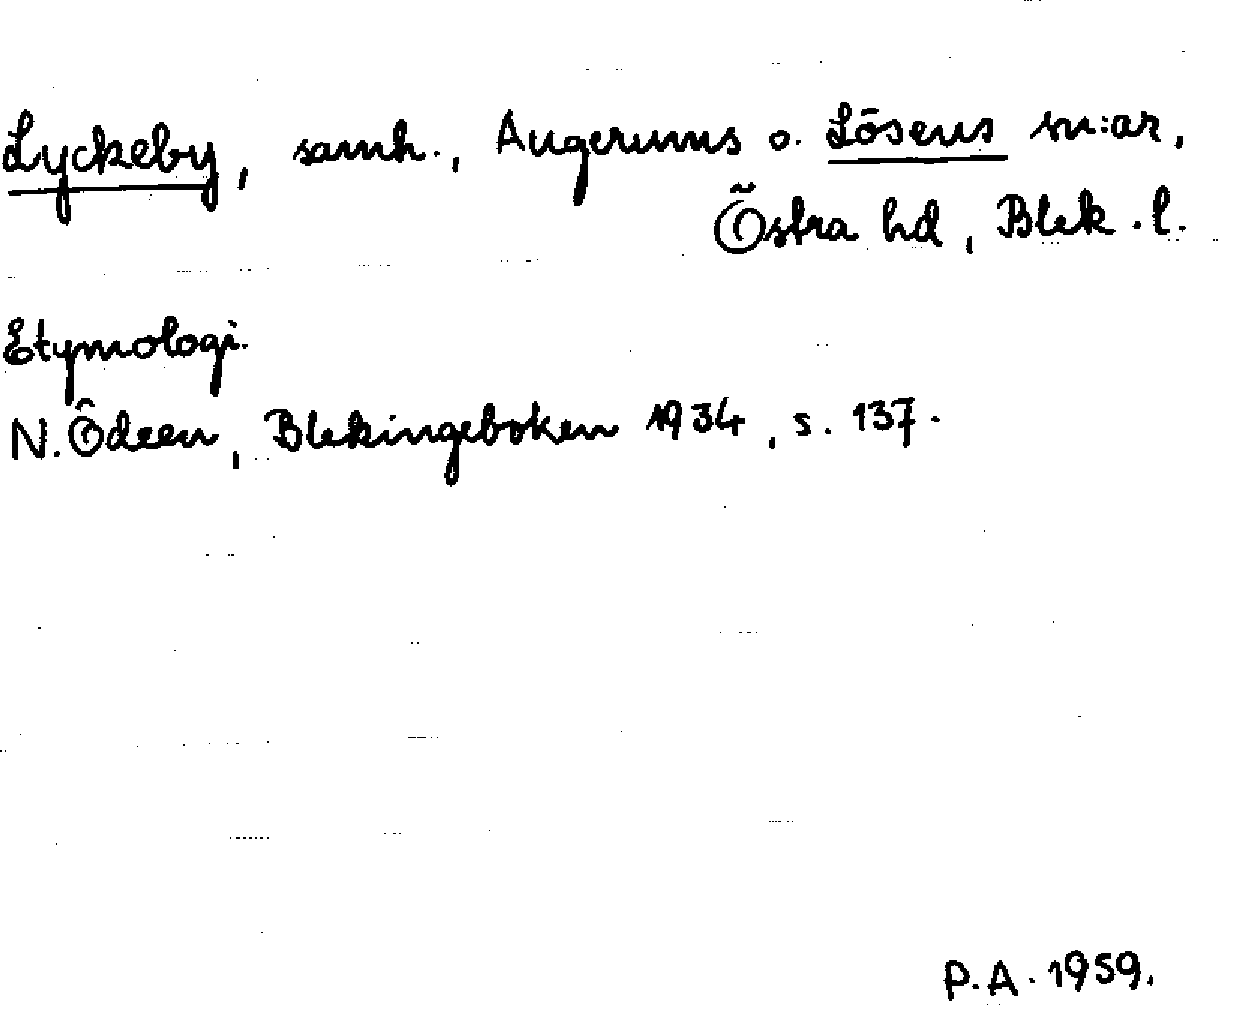 Lyckeby, samh., Augerums o. Lösens sn:ar,
Östra hd, Blek. l.
Etymologi.
N. Ödeen, Blekingeboken 1934, s. 137.
P.A. 1959.